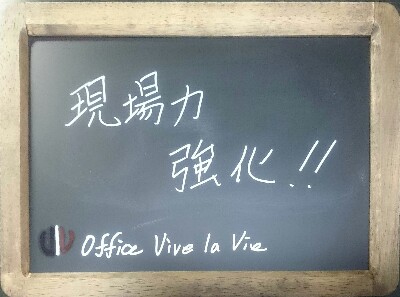 現場力
強化!!
Office Vive la Vie